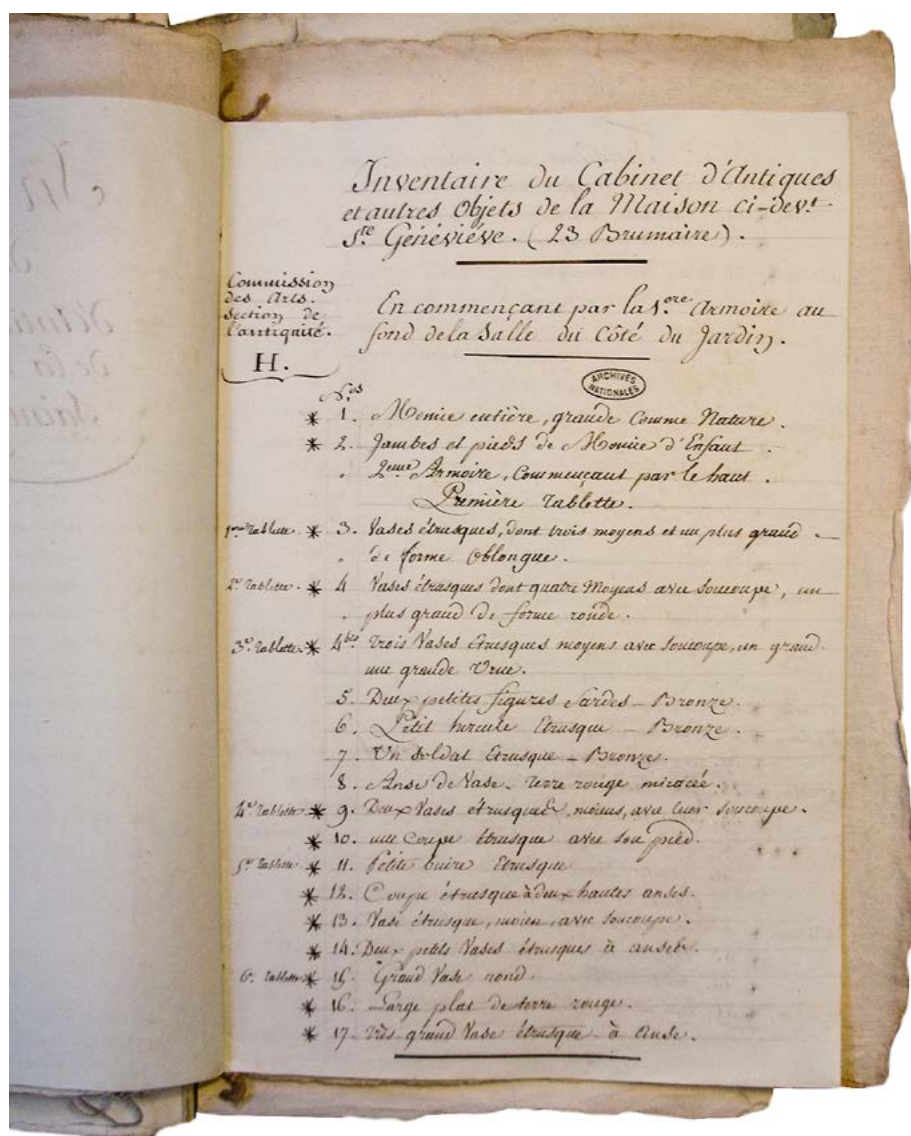 Inventaire du Cabinet d'Antiques
et autres Objets de la Maison ci-dev.t
S.te Géneviéve. (23 Brumaire).
Commission
des Arts.
Section de
l'antiquité.
H.
En commençant par la 1.ere Armoire au
fond de la Salle du Côté du Jardin.
ARCHIVES
NATIONALES
N.os
* 1. Momie entière, grande Comme Nature.
* 2. Jambes et pieds de Momie d'Enfant.
2eme Armoire, Commençant par le haut.
Première Tablette.
1ere Tablette. * 3. Vases étrusques, dont trois moyens et un plus grand
de forme Oblongue.
2e Tablette. * 4 Vases étrusques dont quatre Moyens avec Soucoupe, un
plus grand de forme ronde.
3e Tablette. * 4bis Trois Vases Etrusques moyens avec Soucoupe, un grand
une grande Urne.
5. Deux petites figures Sardes - Bronze.
6. Petit hercule Etrusque - Bronze.
7. Un Soldat Etrusque - Bronze.
8. Anse de Vase. Terre rouge micacée.
4e Tablette * 9. Deux Vases étrusques, moiens, avec leur Soucoupe.
* 10. une Coupe étrusque avec son pied.
5e Tablette * 11. Petite buire Etrusque
* 12. Coupe étrusque à deux hautes anses.
* 13. Vase étrusque, moien, avec Soucoupe.
* 14. Deux petits Vases étrusques à anses.
6e Tablette * 15. Grand Vase rond.
* 16. Large plat de terre rouge.
* 17. Très grand Vase étrusque à Anse.